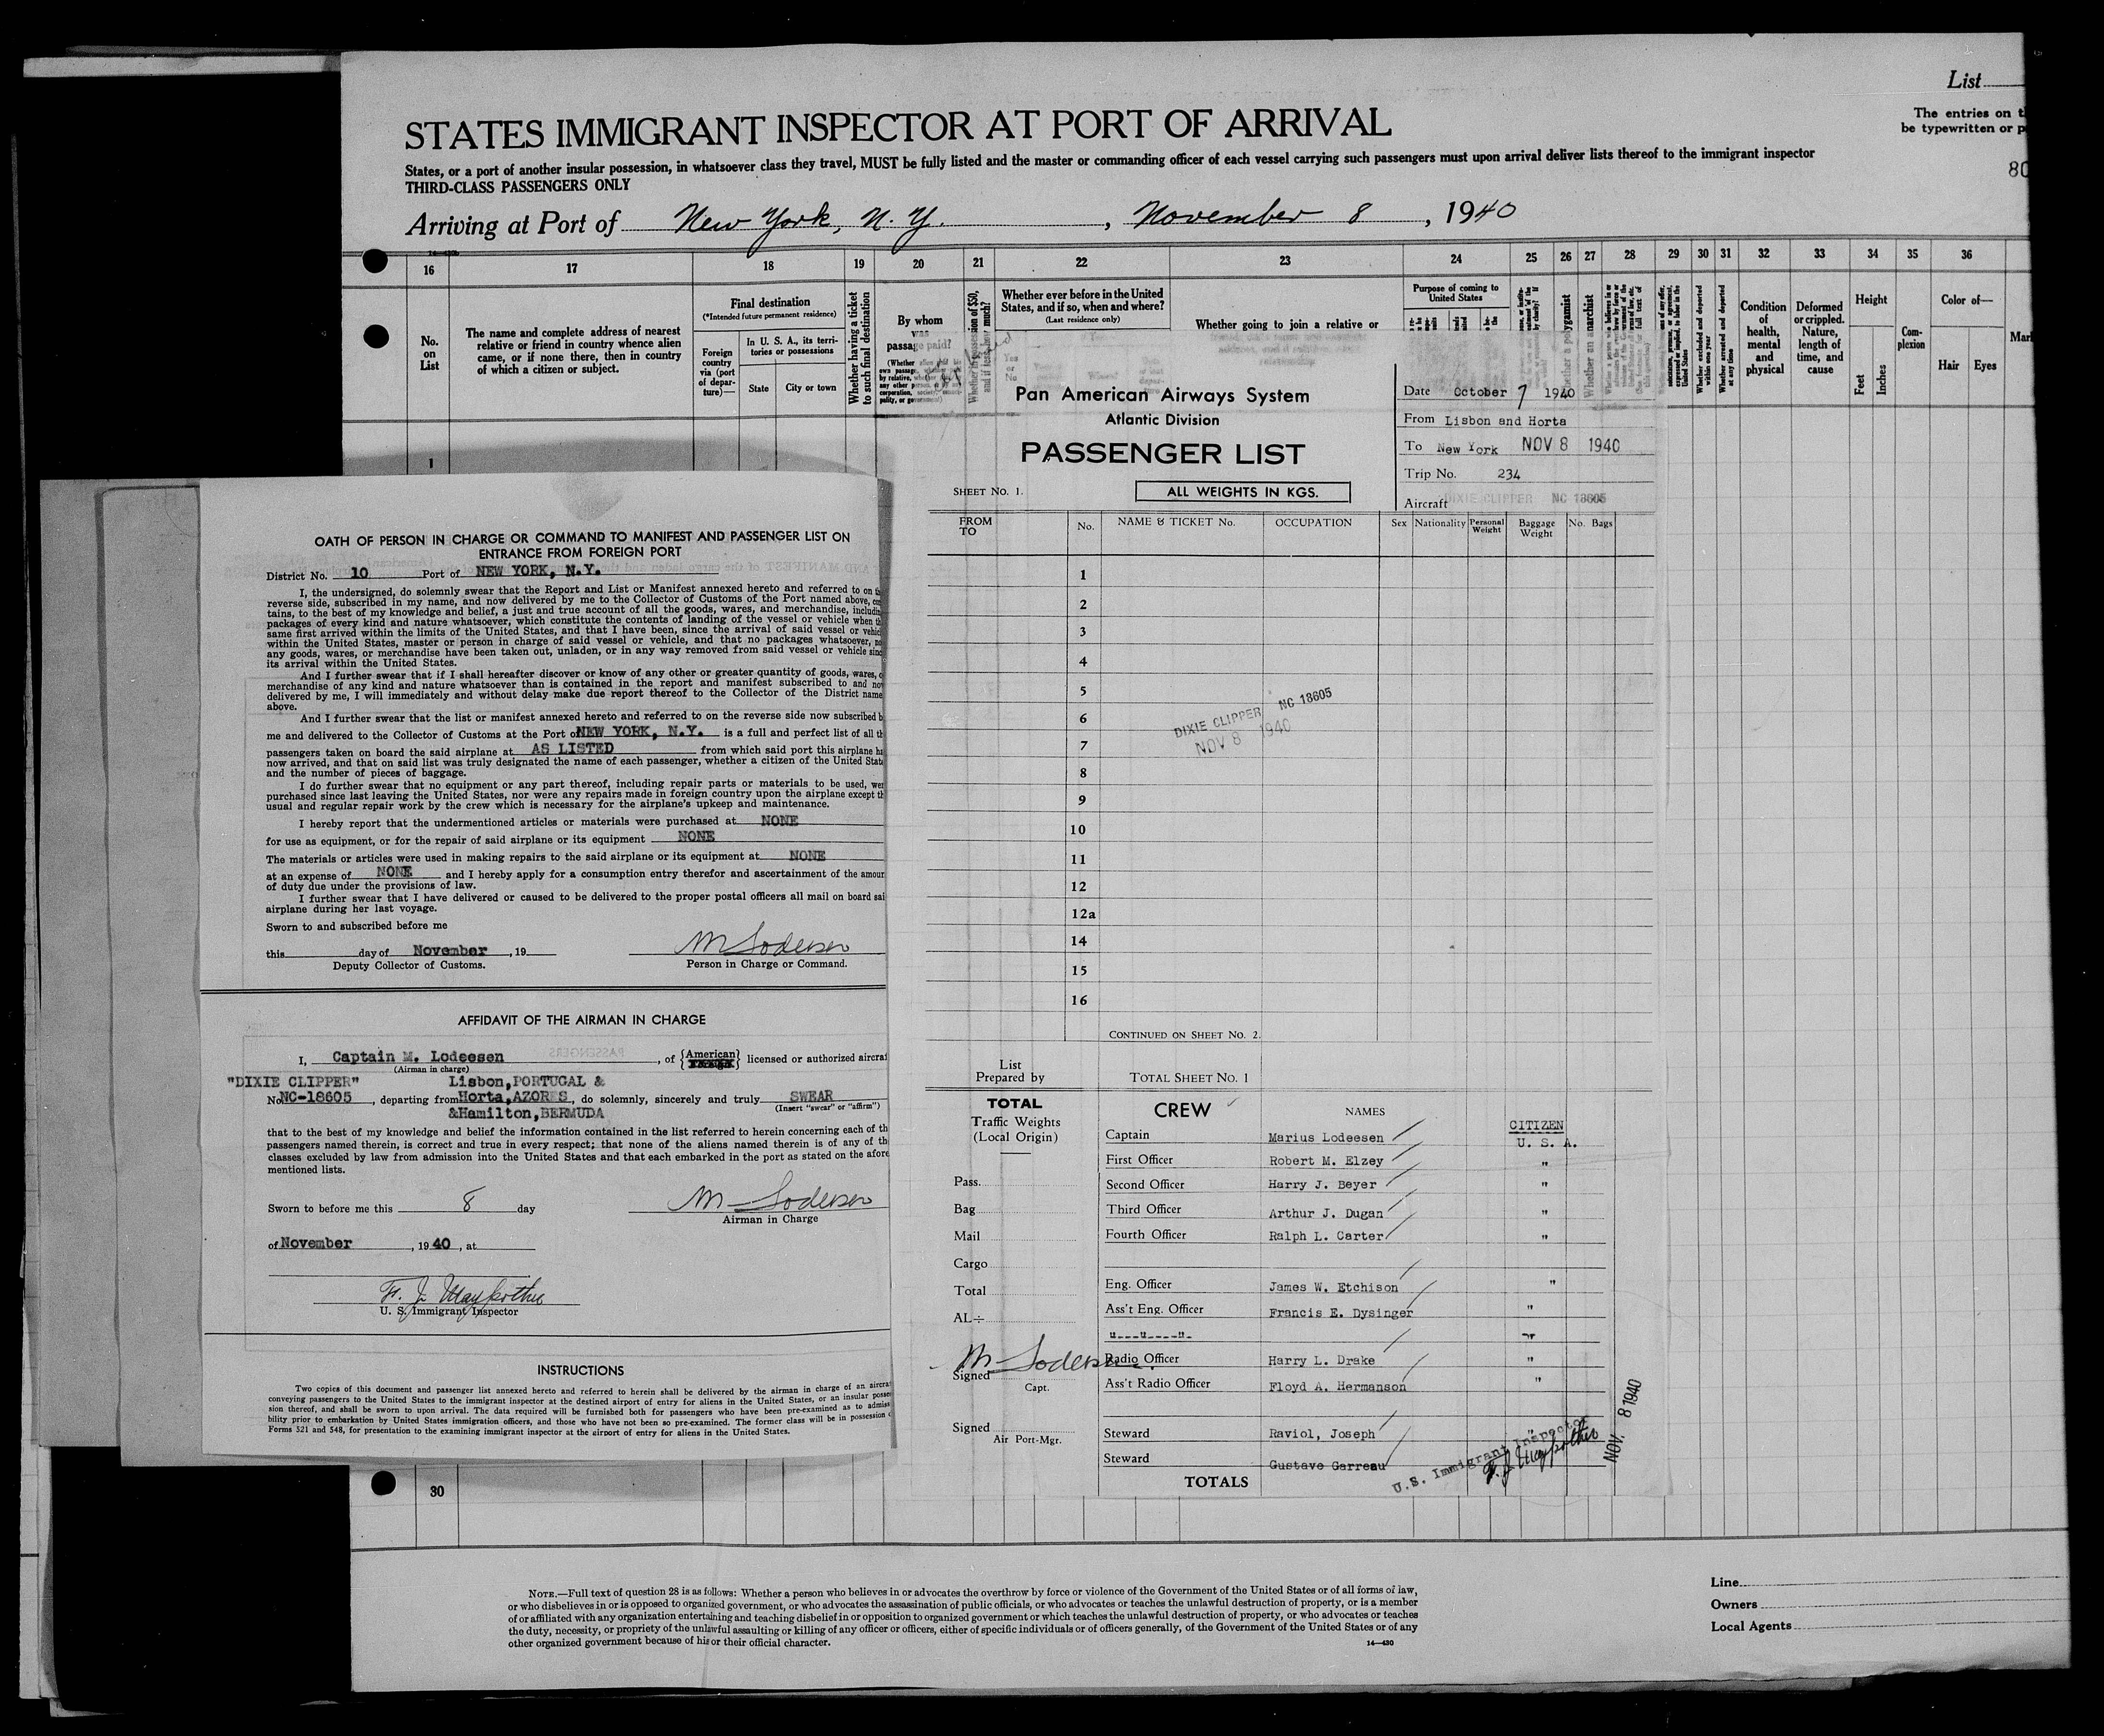 List
STATES IMMIGRANT INSPECTOR AT PORT OF ARRIVAL
The entries on
be typewritten or
States, or a port of another insular possession, in whatsoever class they travel, MUST be fully listed and the master or commanding officer of each vessel carrying such passengers must upon arrival deliver lists thereof to the immigrant inspector
THIRD-CLASS PASSENGERS ONLY
80
Arriving at Port of New York, N. Y., November 8, 1940
16 17 18 19 20 21 22 23 24 25 26 27 28 29 30 31 32 33 34 35 36
No.
on
List
The name and complete address of nearest
relative or friend in country whence alien
came, or if none there, then in country
of which a citizen or subject.
Final destination
(*Intended future permanent residence)
Foreign
country
via (port
of depar-
ture)—
In U. S. A., its terri-
tories or possessions
State
City or town
Whether having a ticket
to such final destination
By whom
was
passage paid?
Whether ever before in the United
States, and if so, when and where?
(Last residence only)
Whether going to join a relative or
Purpose of coming to
United States
Whether a polygamist
Whether an anarchist
Whether excluded and deported
within one year
Whether arrested and deported
at any time
Condition
of
health,
mental
and
physical
Deformed
or crippled.
Nature,
length of
time, and
cause
Height
Feet
Inches
Com-
plexion
Color of—
Hair
Eyes
1
OATH OF PERSON IN CHARGE OR COMMAND TO MANIFEST AND PASSENGER LIST ON
ENTRANCE FROM FOREIGN PORT
District No. 10 Port of NEW YORK, N.Y.
I, the undersigned, do solemnly swear that the Report and List or Manifest annexed hereto and referred to on
reverse side, subscribed in my name, and now delivered by me to the Collector of Customs of the Port named above,
tains, to the best of my knowledge and belief, a just and true account of all the goods, wares, and merchandise,
packages of every kind and nature whatsoever, which constitute the contents of landing of the vessel or vehicle when
same first arrived within the limits of the United States, and that I have been, since the arrival of said vessel or
within the United States, master or person in charge of said vessel or vehicle, and that no packages whatsoever,
any goods, wares, or merchandise have been taken out, unladen, or in any way removed from said vessel or vehicle
its arrival within the United States.
And I further swear that if I shall hereafter discover or know of any other or greater quantity of goods, wares,
merchandise of any kind and nature whatsoever than is contained in the report and manifest subscribed to and
delivered by me, I will immediately and without delay make due report thereof to the Collector of the District
above.
And I further swear that the list or manifest annexed hereto and referred to on the reverse side now subscribed
me and delivered to the Collector of Customs at the Port of NEW YORK, N.Y. is a full and perfect list of all
passengers taken on board the said airplane at AS LISTED from which said port this airplane
now arrived, and that on said list was truly designated the name of each passenger, whether a citizen of the United
and the number of pieces of baggage.
I do further swear that no equipment or any part thereof, including repair parts or materials to be used,
purchased since last leaving the United States, nor were any repairs made in foreign country upon the airplane except
usual and regular repair work by the crew which is necessary for the airplane's upkeep and maintenance.
I hereby report that the undermentioned articles or materials were purchased at NONE
for use as equipment, or for the repair of said airplane or its equipment NONE
The materials or articles were used in making repairs to the said airplane or its equipment at NONE
at an expense of NONE and I hereby apply for a consumption entry therefor and ascertainment of the
of duty due under the provisions of law.
I further swear that I have delivered or caused to be delivered to the proper postal officers all mail on board
airplane during her last voyage.
Sworn to and subscribed before me
this day of November, 19
M Lodeesen
Deputy Collector of Customs.
Person in Charge or Command.
AFFIDAVIT OF THE AIRMAN IN CHARGE
I, Captain M. Lodeesen, of {American} licensed or authorized
(Airman in charge)
"DIXIE CLIPPER" Lisbon, PORTUGAL &
No NC-18605, departing from Horta, AZORES, do solemnly, sincerely and truly SWEAR
&Hamilton, BERMUDA (Insert "swear" or "affirm")
that to the best of my knowledge and belief the information contained in the list referred to herein concerning each of
passengers named therein, is correct and true in every respect; that none of the aliens named therein is of any of
classes excluded by law from admission into the United States and that each embarked in the port as stated on the
mentioned lists.
Sworn to before me this 8 day
M Lodeesen
Airman in Charge
of November, 1940, at
U. S. Immigrant Inspector
INSTRUCTIONS
Two copies of this document and passenger list annexed hereto and referred to herein shall be delivered by the airman in charge of an
conveying passengers to the United States to the immigrant inspector at the destined airport of entry for aliens in the United States, or an insular
sion thereof, and shall be sworn to upon arrival. The data required will be furnished both for passengers who have been pre-examined as to
bility prior to embarkation by United States immigration officers, and those who have not been so pre-examined. The former class will be in possession
Forms 521 and 548, for presentation to the examining immigrant inspector at the airport of entry for aliens in the United States.
Pan American Airways System
Atlantic Division
PASSENGER LIST
SHEET No. 1.
ALL WEIGHTS IN KGS.
Date October 7 1940
From Lisbon and Horta
To New York NOV 8 1940
Trip No. 234
Aircraft DIXIE CLIPPER NC 18605
FROM
TO
No.
NAME & TICKET No.
OCCUPATION
Sex
Nationality
Personal
Weight
Baggage
Weight
No. Bags
1
2
3
4
5
6
7
8
9
10
11
12
12a
14
15
16
DIXIE CLIPPER NC 18605
NOV 8 1940
CONTINUED ON SHEET No. 2.
List
Prepared by
TOTAL SHEET No. 1
TOTAL
Traffic Weights
(Local Origin)
Pass.
Bag
Mail
Cargo
Total
AL÷
M Lodeesen
Signed
Capt.
Signed
Air Port-Mgr.
CREW NAMES
CITIZEN
Captain Marius Lodeesen U. S. A.
First Officer Robert M. Elzey "
Second Officer Harry J. Beyer "
Third Officer Arthur J. Dugan "
Fourth Officer Ralph L. Carter "
Eng. Officer James W. Etchison "
Ass't Eng. Officer Francis E. Dysinger "
"---"----"- "
Radio Officer Harry L. Drake "
Ass't Radio Officer Floyd A. Hermanson "
Steward Raviol, Joseph "
Steward Gustave Garreau
TOTALS
U.S. Immigrant Inspector
NOV. 8 1940
30
NOTE.—Full text of question 28 is as follows: Whether a person who believes in or advocates the overthrow by force or violence of the Government of the United States or of all forms of law,
or who disbelieves in or is opposed to organized government, or who advocates the assassination of public officials, or who advocates or teaches the unlawful destruction of property, or is a member
of or affiliated with any organization entertaining and teaching disbelief in or opposition to organized government or which teaches the unlawful destruction of property, or who advocates or teaches
the duty, necessity, or propriety of the unlawful assaulting or killing of any officer or officers, either of specific individuals or of officers generally, of the Government of the United States or of any
other organized government because of his or their official character.
14—430
Line
Owners
Local Agents